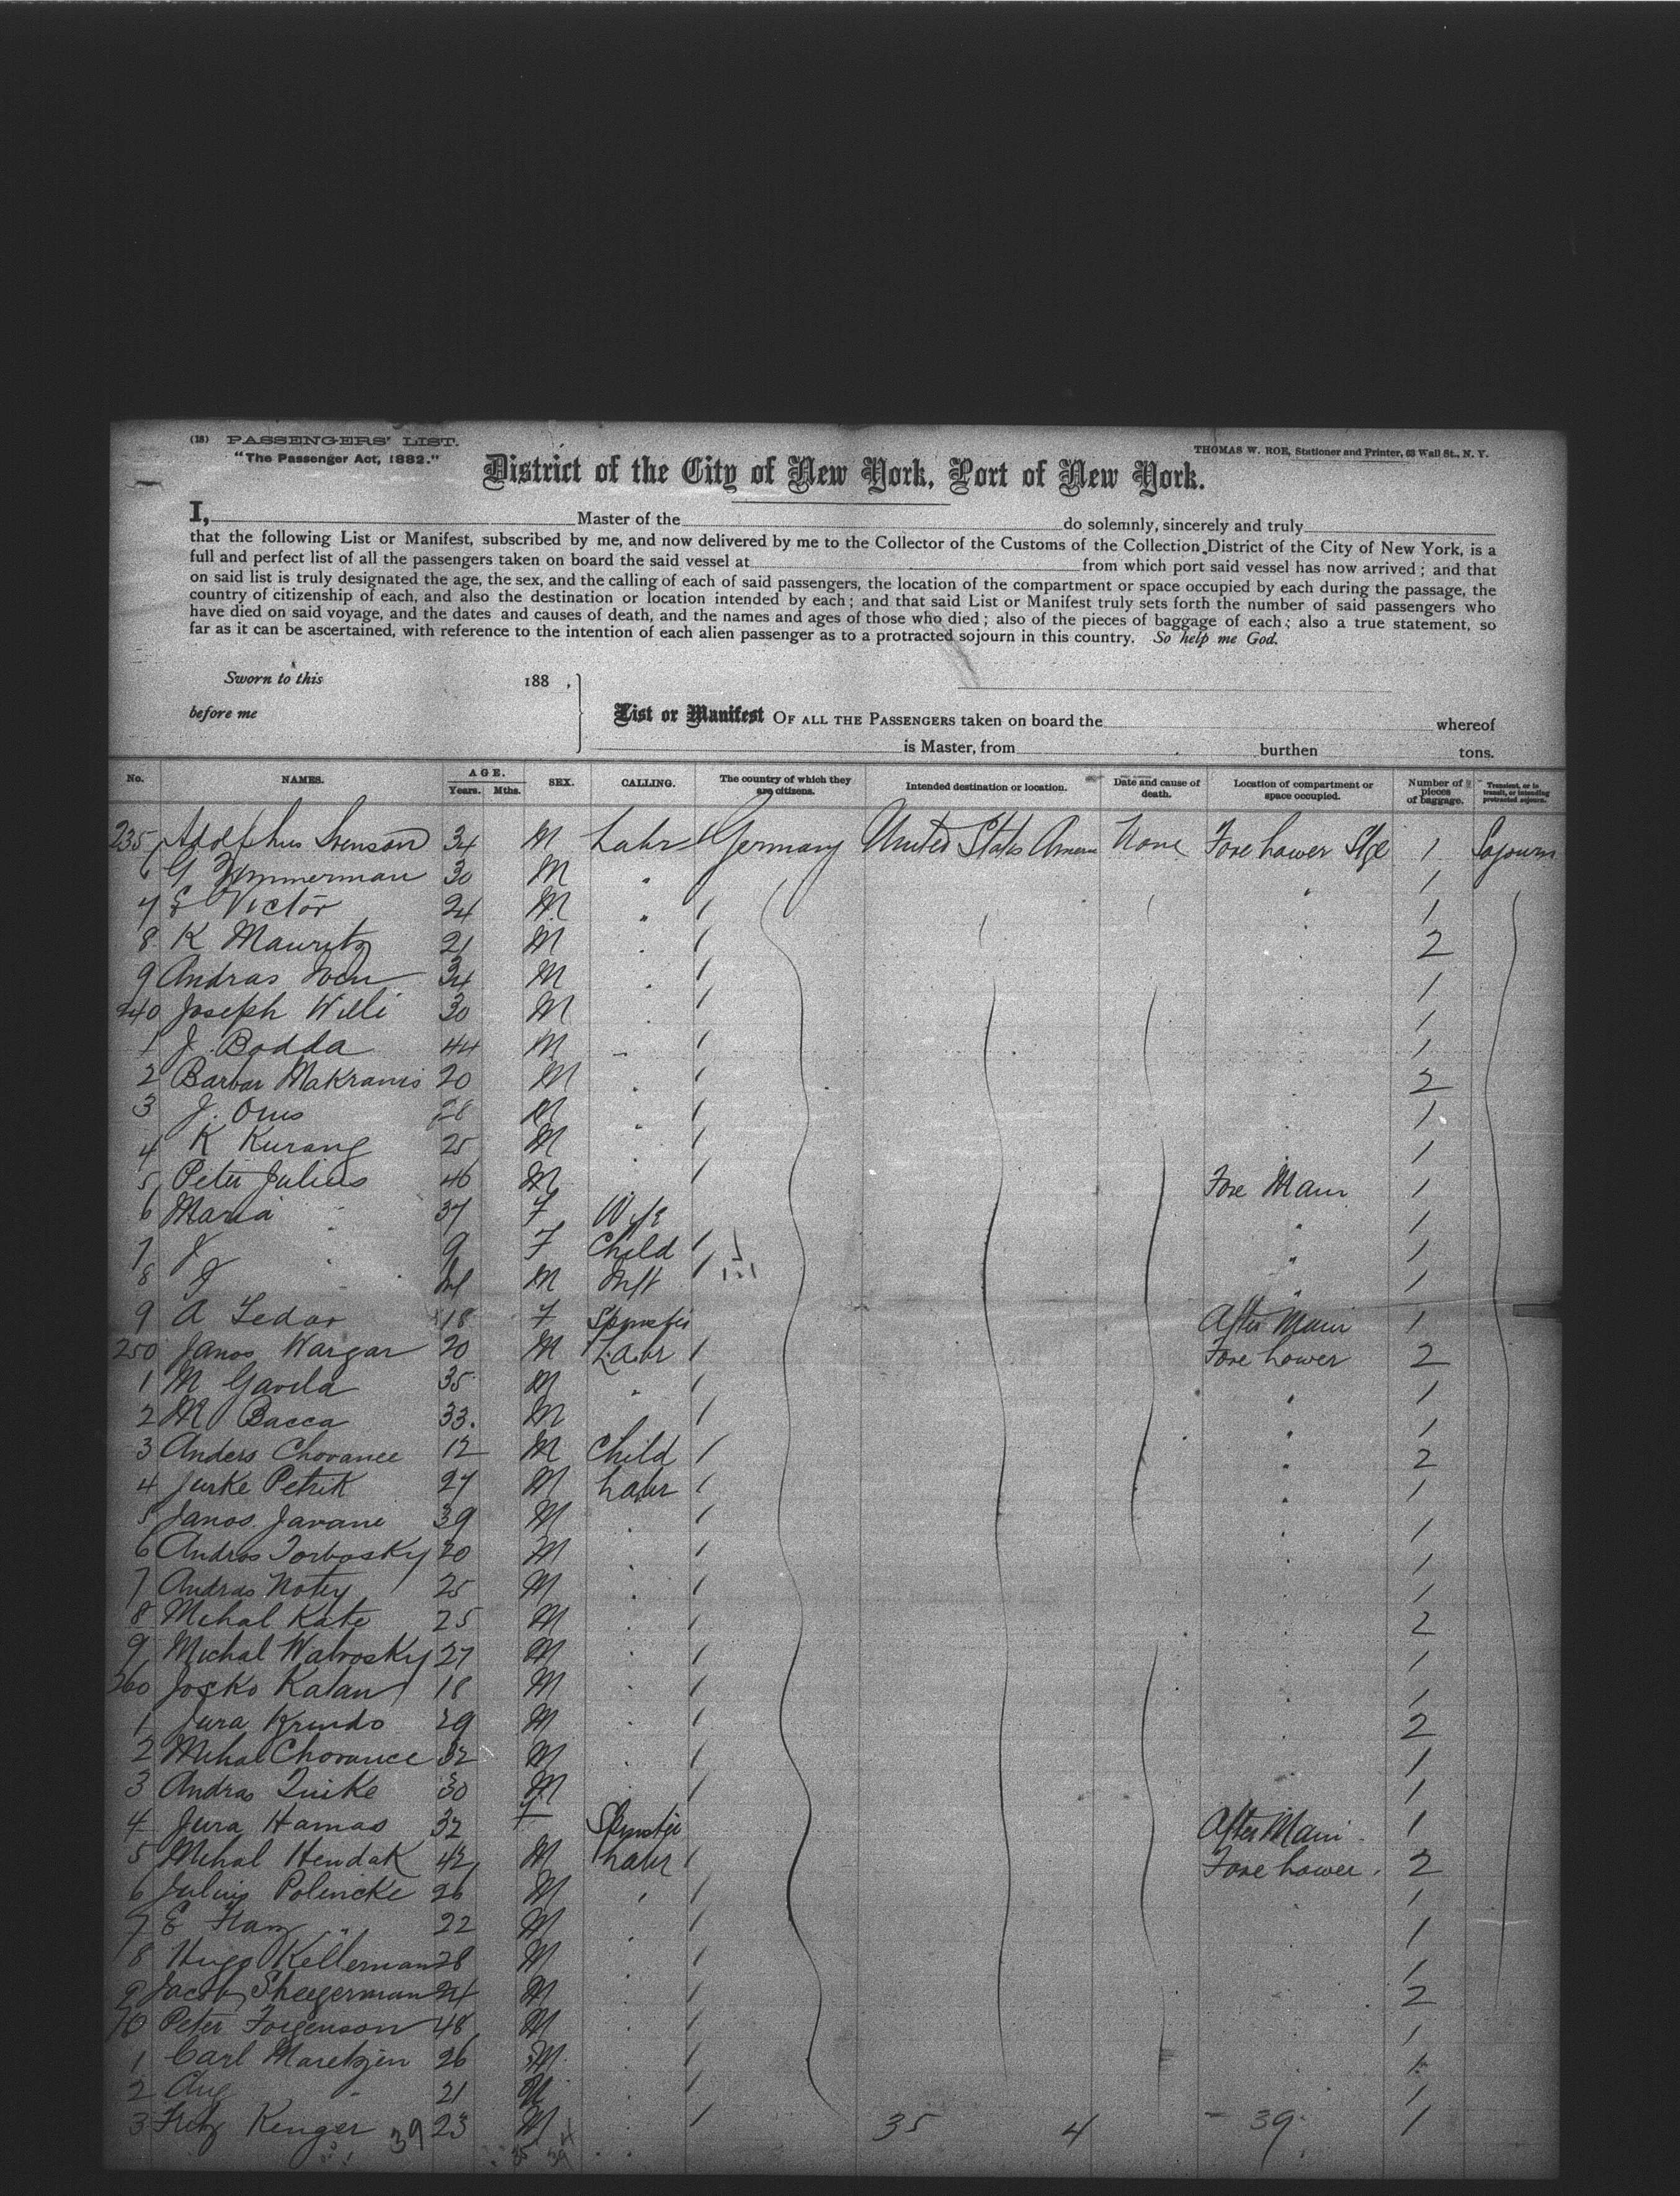 (18) PASSENGERS' LIST.
"The Passenger Act, 1882."
THOMAS W. ROE, Stationer and Printer, 63 Wall St., N. Y.
District of the City of New York, Port of New York.
I, Master of the do solemnly, sincerely and truly
that the following List or Manifest, subscribed by me, and now delivered by me to the Collector of the Customs of the Collection District of the City of New York, is a
full and perfect list of all the passengers taken on board the said vessel at from which port said vessel has now arrived; and that
on said list is truly designated the age, the sex, and the calling of each of said passengers, the location of the compartment or space occupied by each during the passage, the
country of citizenship of each, and also the destination or location intended by each; and that said List or Manifest truly sets forth the number of said passengers who
have died on said voyage, and the dates and causes of death, and the names and ages of those who died; also of the pieces of baggage of each; also a true statement, so
far as it can be ascertained, with reference to the intention of each alien passenger as to a protracted sojourn in this country. So help me God.
Sworn to this 188 ,
before me
List or Manifest OF ALL THE PASSENGERS taken on board the whereof
is Master, from burthen tons.
No. NAMES. AGE. Years. Mths. SEX. CALLING. The country of which they are citizens. Intended destination or location. Date and cause of death. Location of compartment or space occupied. Number of pieces of baggage. Transient, or in transit, or intending protracted sojourn.
235 Adolphus Svenson 34 M Labr Germany United States None Fore Lower Stge 1 Sojourn
6 G Zimmerman 30 M " 1
7 E Victor 24 M " / 1
8 K Mauritz 21 M " / 2
9 Andras 34 M " / 1
240 Joseph Willi 30 M " / 1
1 J. Bodda 44 M " / 1
2 Barbar Makranis 20 M " / 2
3 J. Onus 28 M " / 1
4 K Kurang 25 M " / 1
5 Peter Julius 46 M " / Fore Main 1
6 Maria " 37 F Wife " 1
7 J " 9 F Child / " 1
8 J M Inft / " 1
9 A Ledar 18 F Spinster After Main 1
250 Janos Wargar 20 M Labr / Fore Lower 2
1 M Gavila 35 M " / " 1
2 M Bacca 33 M / " 1
3 Anders Chovance 12 M Child / " 2
4 Jurke Petrik 27 M Labr / " 1
5 Janos Javane 39 M " / " 1
6 Andros Torbosky 20 M " / " 1
7 Andras Notey 25 M " / " 1
8 Mihal Kate 25 M " / " 2
9 Michal Wabrosky 27 M " / " 1
260 Josko Kalan 18 M " / " 1
1 Jura Krindo 29 M " / " 2
2 Mihal Chovance 32 M " / 1
3 Andras 30 M " / 1
4 Jura Hamas 32 F Spinster After Main 1
5 Mihal Hendak 42 M Labr / Fore Lower 2
6 Julius Polencke 26 M " / " 1
7 E Flam " 22 M " / 1
8 Hugo Kellerman 28 M " / 1
9 Jacob Sheegerman 24 M " / 2
70 Peter Forgenson 48 M " / 1
1 Carl Maretzjen 26 M " / 1
2 Aug " 21 M " / 1
3 Fritz Kenger 23 M " / 1
39 35 4 - 39